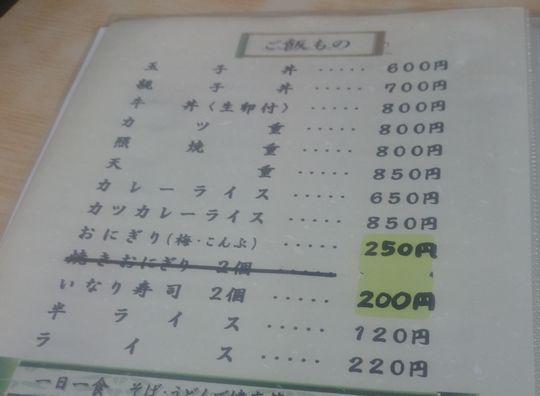 ご飯もの
玉子丼 ····· 600円
親子丼 ····· 700円
牛丼(生卵付) ····· 800円
カツ重 ····· 800円
照焼重 ····· 800円
天重 ····· 850円
カレーライス ····· 650円
カツカレーライス ····· 850円
おにぎり(梅・こんぶ) ····· 250円
焼きおにぎり 2個 ·····
いなり寿司 2個 ····· 200円
半ライス ····· 120円
ライス ····· 220円
一日一食 そば・うどん